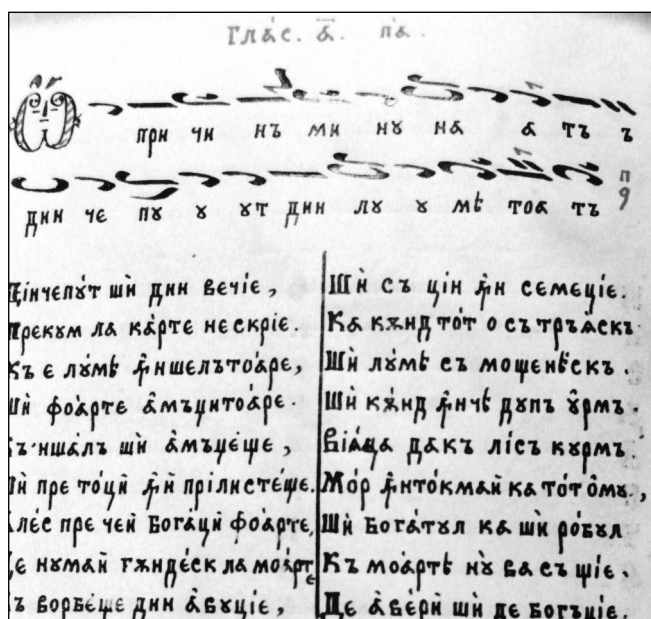 Гла́с. а҃. па̀.
при чи нъ ми ну на а тъ ъ
дин че пꙋ ꙋ ꙋт дин лꙋ ꙋ мѣ тоа тъ
Дінчепꙋ́т шѝ дин вечі́е,
Прекум ла ка́рте не скріе.
Къ є лꙋ́мѣ ꙟншелъто́аре,
Шѝ фоа́рте а҆мъцито́аре.
шѝ а҆мъце́ще,
Шѝ пре то́ци ꙟ́й прілисте́ще.
Але́с пре чей Бога́ци фоа́рте,
Де нума́й гѫнде́ск ла моа́рте
Съ ворбе́ще дин а҆вꙋціе,
Шѝ съ цін ꙟн семеціе.
Ка кѫнд то́т о съ тръꙗ́скъ
Шѝ лꙋ́мѣ съ мощенѣ́скъ.
Шѝ кѫ́нд ꙟнчѣ́ дꙋпъ ꙋ҆рмъ.
Віа́ца дакъ лі́съ кꙋрмъ
Мо́р ꙟнто́кмай ка тот о́мꙋ,
Шѝ Бога́тꙋл ка шѝ ро́бꙋл
Къ моа́ртѣ нꙋ̀ ва съ щіе.
Де а҆ве́ри шѝ де богъціе.